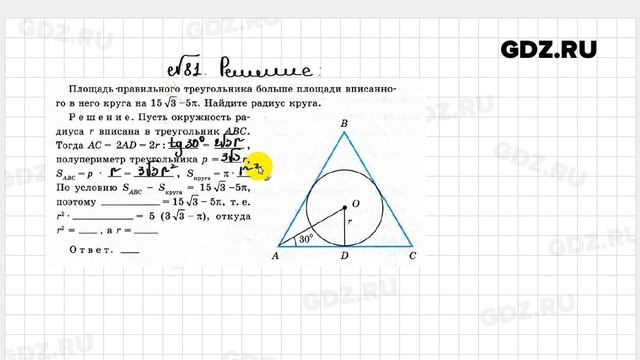 GDZ.RU
№81. Решение:
Площадь правильного треугольника больше площади вписанно-
го в него круга на 15√3 –5π. Найдите радиус круга.
Решение. Пусть окружность ра-
диуса r вписана в треугольник ABC.
Тогда AC = 2AD = 2r : tg 30° = 2√3r,
полупериметр треугольника p = 3√3 r,
S_ABC = p · r = 3√3r², S_круга = π · r².
По условию S_ABC – S_круга = 15√3 –5π,
поэтому ____ = 15√3 – 5π, т. е.
r² · ____ = 5 (3√3 – π), откуда
r² = ___, а r = ___
Ответ. ___
B
O
r
30°
A D C
GDZ.RU
GDZ.RU
GDZ.RU
GDZ.RU